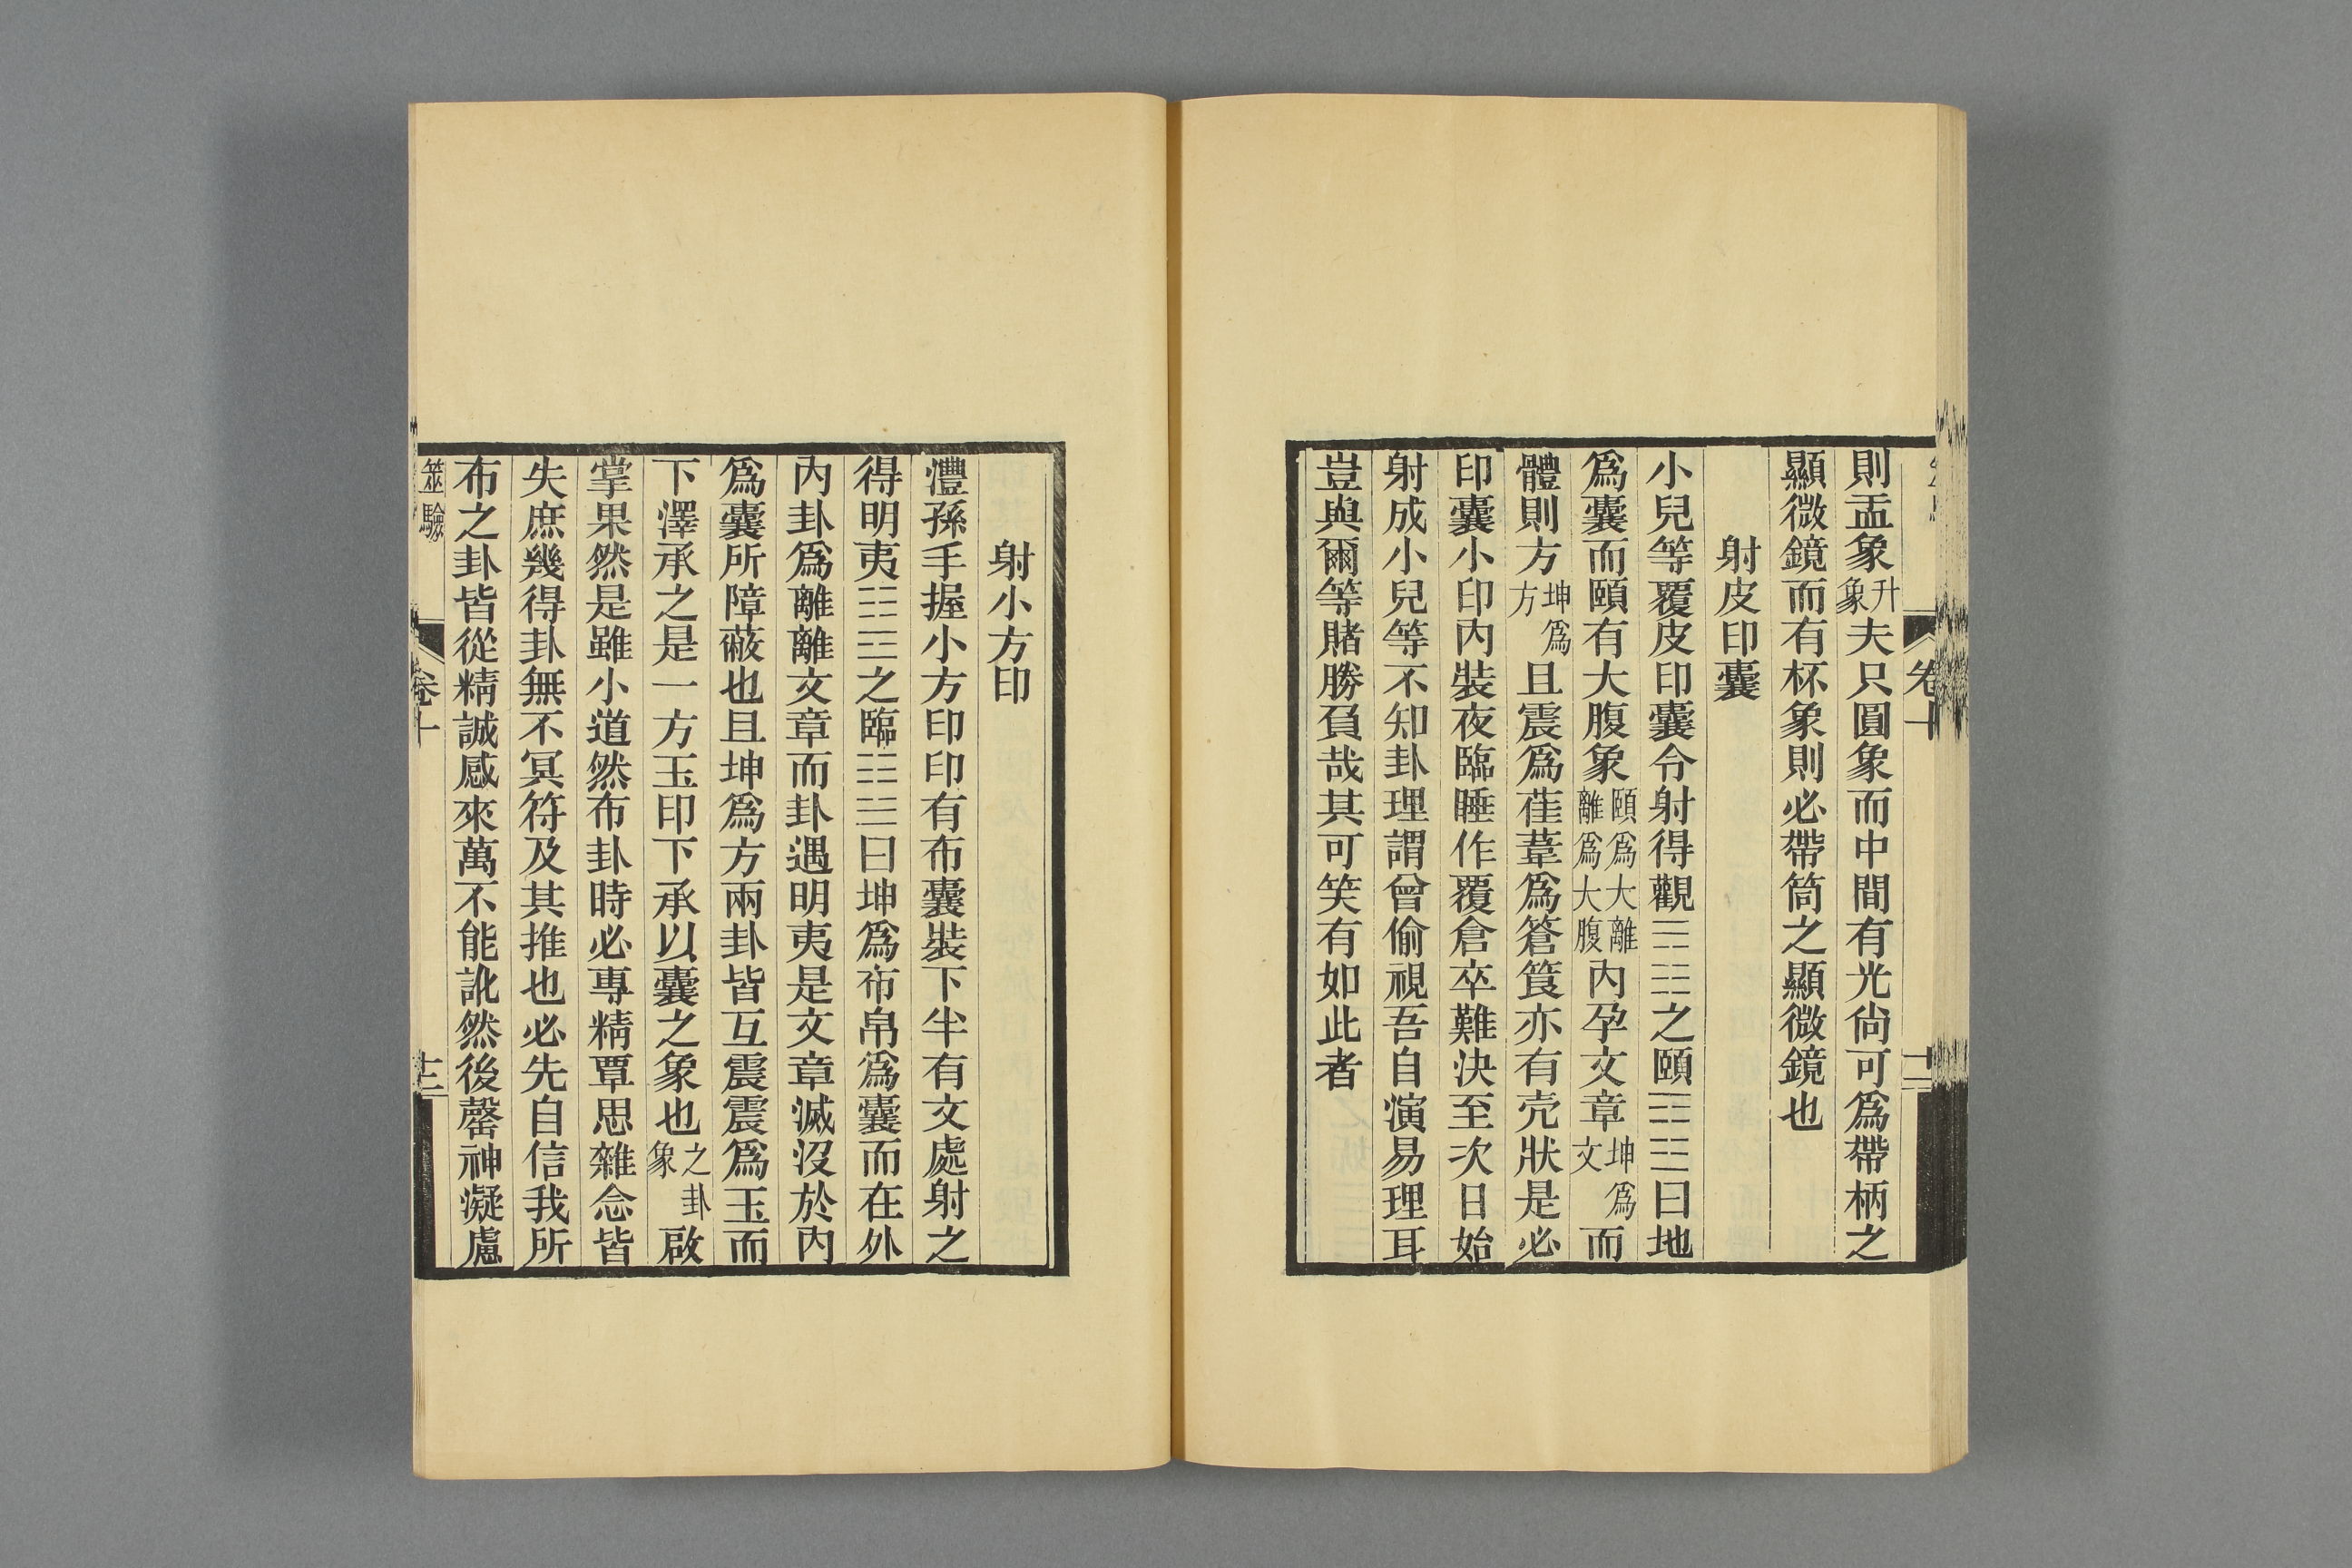 則盂象升象夫只圓象而中間有光尙可爲帶柄之
顯微鏡而有杯象則必帶筒之顯微鏡也
射皮印囊
小兒等覆皮印囊令射得觀☴☷之頤☶☳曰地
爲囊而頤有大腹象頤爲大離離爲大腹內孕文章坤爲文而
體則方坤爲方且震爲萑葦爲蒼筤亦有壳狀是必
印囊小印內裝夜臨睡作覆倉卒難決至次日始
射成小兒等不知卦理謂曾偷視吾自演易理耳
豈與爾等賭勝負哉其可笑有如此者
卷十
十二
射小方印
灃孫手握小方印印有布囊裝下半有文處射之
得明夷☷☲之臨☷☱曰坤爲布帛爲囊而在外
內卦爲離離文章而卦遇明夷是文章滅沒於內
爲囊所障蔽也且坤爲方兩卦皆互震震爲玉而
下澤承之是一方玉印下承以囊之象也之卦象啟
掌果然是雖小道然布卦時必專精覃思雜念皆
失庶幾得卦無不冥符及其推也必先自信我所
布之卦皆從精誠感來萬不能訛然後罄神凝慮
筮驗
卷十
十三